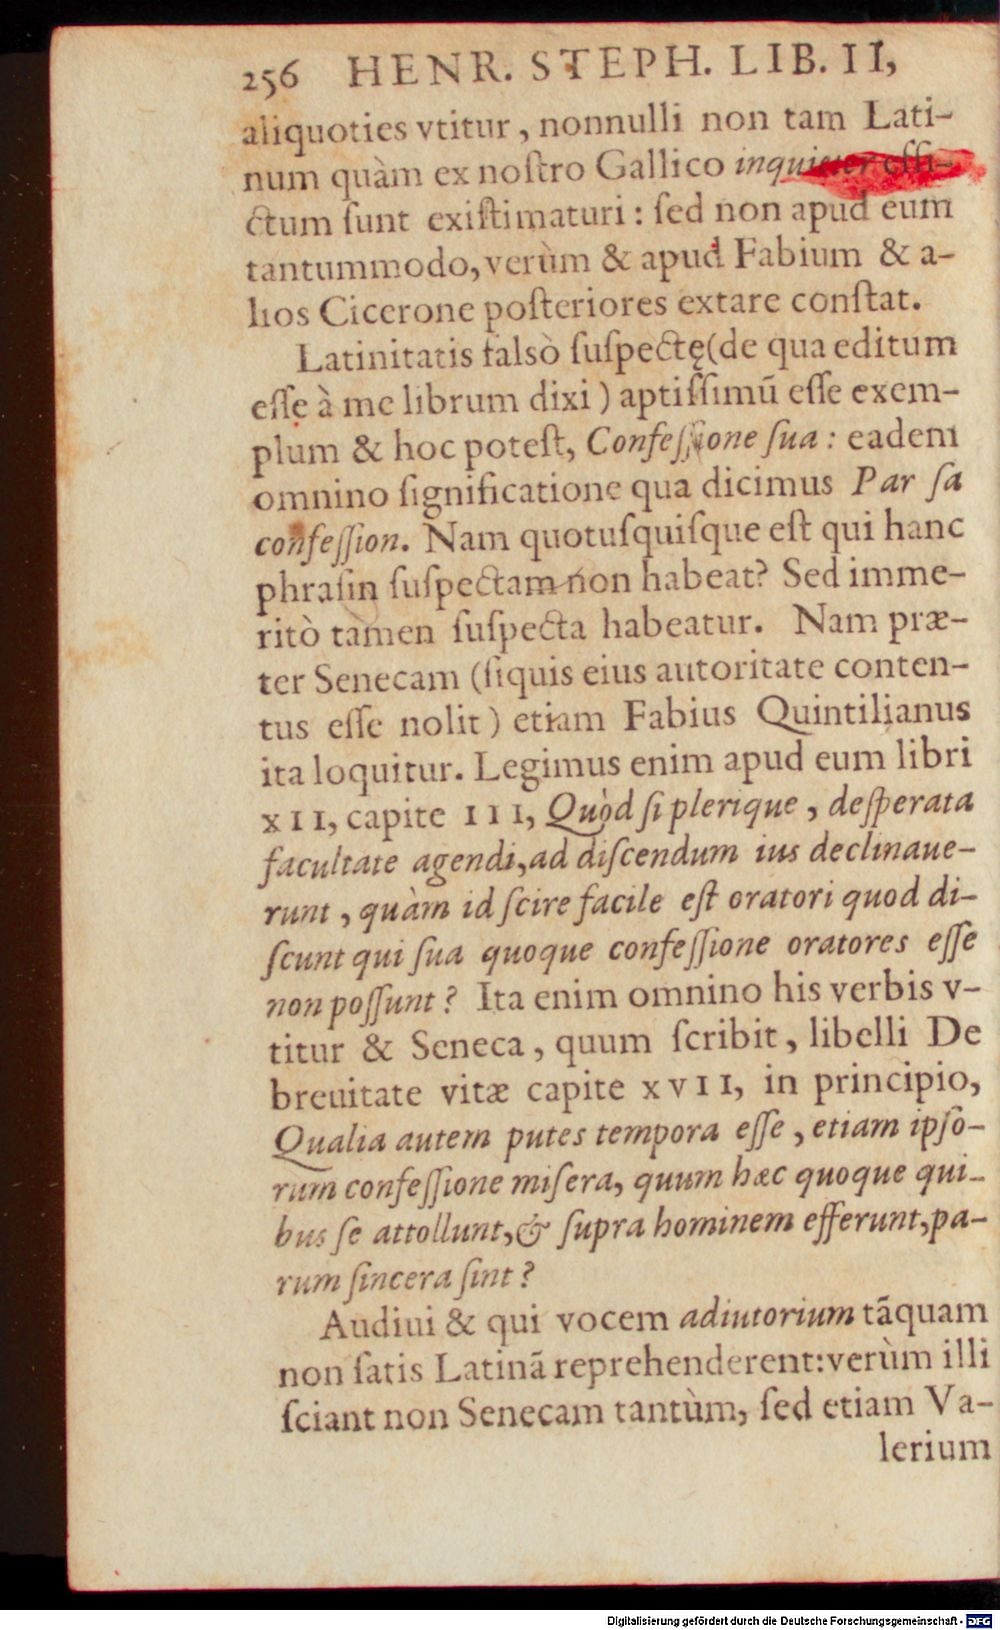 256 HENR. STEPH. LIB. II,
aliquoties vtitur, nonnulli non tam Lati-
num quàm ex noſtro Gallico inquieter effi-
ctum ſunt exiſtimaturi: ſed non apud eum
tantummodo, verùm & apud Fabium & a-
lios Cicerone poſteriores extare conſtat.
Latinitatis falsò ſuſpectę (de qua editum
eſſe à me librum dixi) aptiſſimũ eſſe exem-
plum & hoc poteſt, Confeſſione ſua: eadem
omnino ſignificatione qua dicimus Par ſa
confeſſion. Nam quotuſquiſque eſt qui hanc
phraſin ſuſpectam non habeat? Sed imme-
ritò tamen ſuſpecta habeatur. Nam præ-
ter Senecam (ſiquis eius autoritate conten-
tus eſſe nolit) etiam Fabius Quintilianus
ita loquitur. Legimus enim apud eum libri
XII, capite III, Quòd ſi plerique, deſperata
facultate agendi, ad diſcendum ius declinaue-
runt, quàm id ſcire facile eſt oratori quod di-
ſcunt qui ſua quoque confeſſione oratores eſſe
non poſſunt? Ita enim omnino his verbis v-
titur & Seneca, quum ſcribit, libelli De
breuitate vitæ capite XVII, in principio,
Qualia autem putes tempora eſſe, etiam ipſo-
rum confeſſione miſera, quum hæc quoque qui-
bus ſe attollunt, & ſupra hominem efferunt, pa-
rum ſincera ſint?
Audiui & qui vocem adiutorium tãquam
non ſatis Latinã reprehenderent: verùm illi
ſciant non Senecam tantùm, ſed etiam Va-
lerium
Digitalisierung gefördert durch die Deutsche Forschungsgemeinschaft - DFG